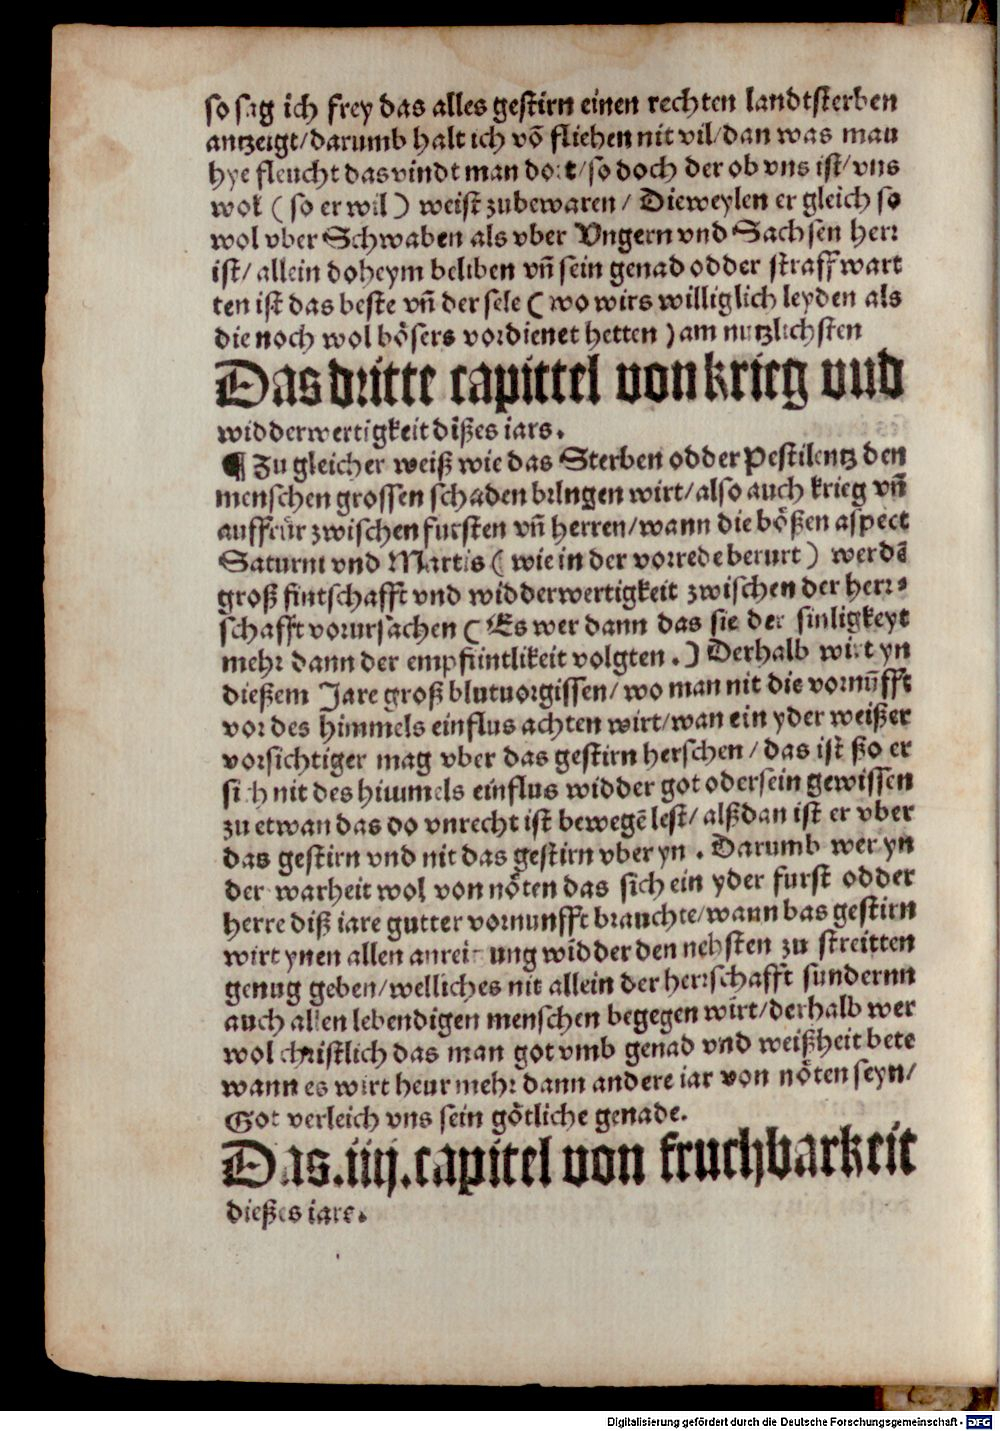 so sag ich frey das alles gestirn einen rechten landtsterben
antzeigt/darumb halt ich võ fliehen nit vil/dan was man
hye fleucht das vindt man dort/so doch der ob vns ist/vns
wol (so er wil) weist zubewaren/ Dieweylen er gleich so
wol vber Schwaben als vber Vngern vnd Sachsen herr
ist/allein doheym beliben vñ sein genad odder straff wart
ten ist das beste vñ der sele (wo wirs williglich leyden als
die noch wol bösers vordienet hetten) am nutzlichsten
Das dritte capittel von krieg vnd
widderwertigkeit dißes iars.
¶ Zu gleicher weiß wie das Sterben odder Pestilentz den
menschen grossen schaden bringen wirt/also auch krieg vñ
auffrür zwischen fursten vñ herren/wann die bößen aspect
Saturni vnd Martis (wie in der vorrede berurt) werdē
groß fintschafft vnd widderwertigkeit zwischen der herr⸗
schafft vorursachen (Es wer dann das sie der sinligkeyt
mehr dann der empfintlikeit volgten.) Derhalb wirt yn
dießem Jare groß blutuorgissen/wo man nit die vornũfft
vor des himmels einflus achten wirt/wan ein yder weißer
vorsichtiger mag vber das gestirn herschen/das ist ßo er
sich nit des himmels einflus widder got oder sein gewissen
zu etwan das do vnrecht ist bewegē lest/alßdan ist er vber
das gestirn vnd nit das gestirn vber yn. Darumb wer yn
der warheit wol von nöten das sich ein yder furst odder
herre diß iare gutter vornunfft brauchte/wann bas gestirn
wirt ynen allen anreitzung widder den nehsten zu streitten
genug geben/welliches nit allein der herrschafft sundernn
auch allen lebendigen menschen begegen wirt/derhalb wer
wol christlich das man got vmb genad vnd weißheit bete
wann es wirt heur mehr dann andere iar von nöten seyn/
Got verleich vns sein götliche genade.
Das .iiij. capitel von fruchbarkeit
dießes iars.
Digitalisierung gefördert durch die Deutsche Forschungsgemeinschaft - DFG